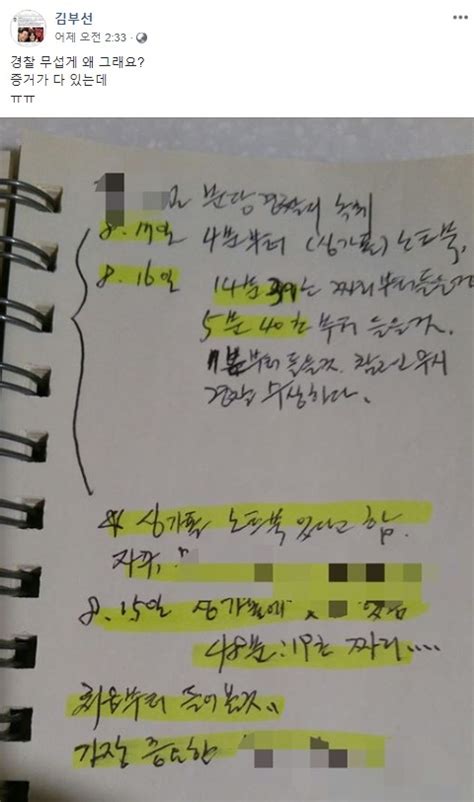 김부선
어제 오전 2:33
경찰 무섭게 왜 그래요?
증거가 다 있는데
ㅠㅠ
분당경찰
8. 17일 4분부터 (싱가폴) 노트북,
8. 16일 14분 39 짜리부터 들을것
5분 40초 부터 들을것.
부터 들을것. 참고인 무시
경찰 수상하다.
싱가폴 노트북 있다고 함.
8. 15일 싱가폴에
48분:19초 짜리....
처음부터 들어볼것..
가장 중요한